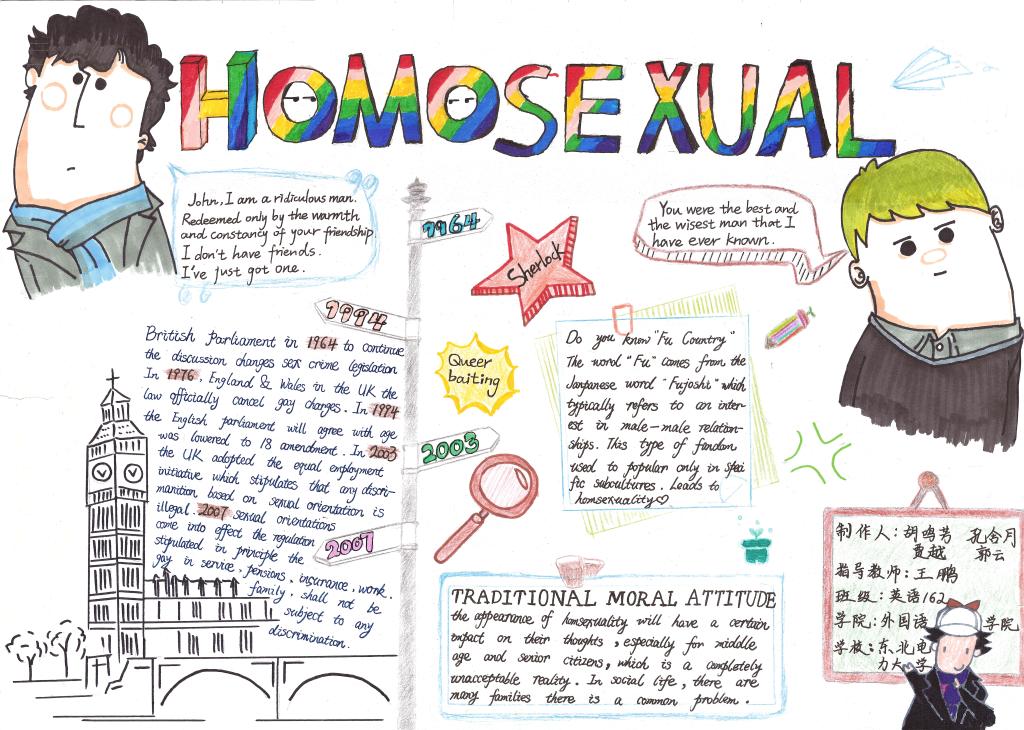 HOMOSEXUAL
John, I am a ridiculous man.
Redeemed only by the warmth
and constancy of your friendship
I don't have friends.
I've just got one.
1964
Sherlock
You were the best and
the wisest man that I
have ever known.
1994
British Parliament in 1964 to continue
the discussion changes sex crime legislation
In 1976, England & Wales in the UK the
law officially cancel gay charges. In 1994
the English parliament will agree with age
was lowered to 18 amendment. In 2003
the UK adopted the equal employment
initiative which stipulates that any discri-
manition based on sexual orientation is
illegal. 2007 sexual orientations
come into effect the regulation
stipulated in principle the
gay in service, pensions, insurance, work.
family, shall not be
subject to any
discrimination.
Queer
baiting
2003
2007
Do you know "Fu Country"
The word "Fu" comes from the
Janpanese word "Fujoshi" which
typically refers to an inter-
est in male-male relation-
ships. This type of fandom
used to popular only in spei
fic subcultures. Leads to
homsexuality
TRADITIONAL MORAL ATTITUDE
the appearance of homsexuality will have a certain
impact on their thoughts, especially for middle
age and senior citizens, which is a completely
unacceptable reality. In social life, there are
many families there is a common problem.
制作人:胡鸣芳 孔令月
夏越 郭云
指导教师:王鹏
班级:英语162
学院:外国语学院
学校:东北电
力大学